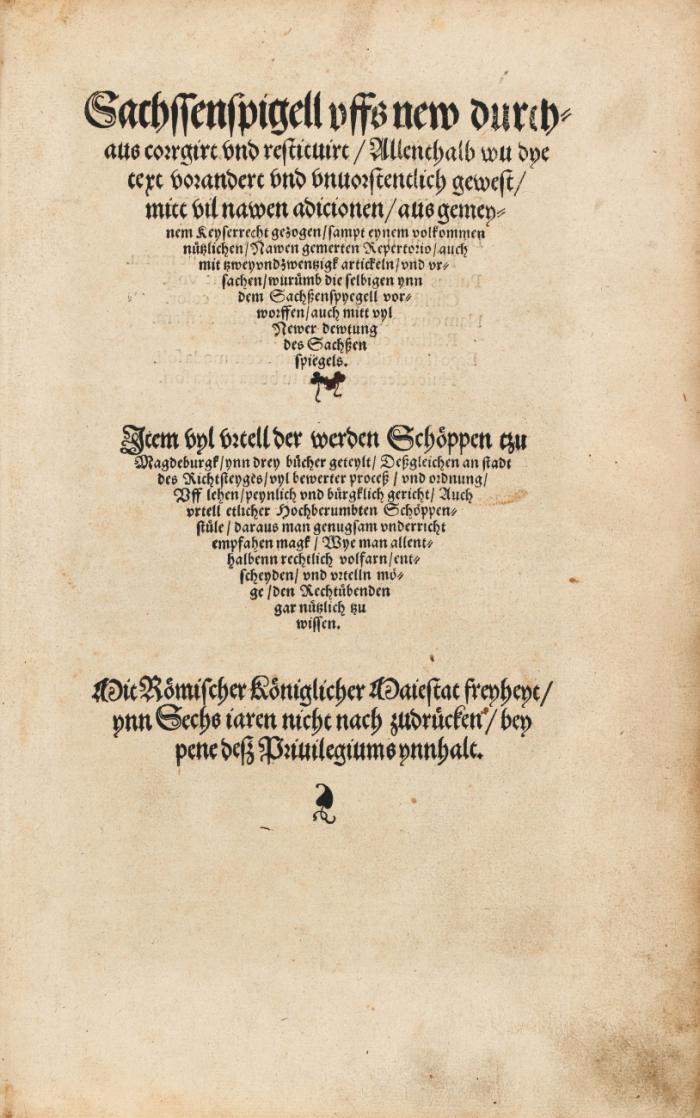 Sachssenspigell vffs new durch⸗
aus corrgirt vnd restituirt / Allenthalb wu dye
text vorandert vnd vnuorstentlich gewest /
mitt vil nawen adicionen / aus gemey⸗
nem Keyserrecht gezogen / sampt eynem volkommen
nützlichen / Nawen gemerten Repertorio / auch
mit tzweyvndzwentzigk artickeln / vnd vr⸗
sachen / würümb die selbigen ynn
dem Sachßenspyegell vor⸗
worffen / auch mitt vyl
Newer dewtung
des Sachßen
spiegels.
Item vyl vrtell der werden Schöppen tzu
Magdeburgk / ynn drey bücher geteylt / Deßgleichen an stadt
des Richtsteyges / vyl bewerter proceß / vnd ordnung /
Vff lehen / peynlich vnd bürgklich gericht / Auch
vrteil etlicher Hochberumbten Schöppen⸗
stüle / daraus man genugsam vnderricht
empfahen magk / Wye man allent⸗
halbenn rechtlich volfarn / ent⸗
scheyden / vnd vrtelln mö⸗
ge / den Rechtübenden
gar nützlich tzu
wissen.
Mit Römischer Königlicher Maiestat freyheyt /
ynn Sechs iaren nicht nach zudrücken / bey
pene deß Priuilegiums ynnhalt.